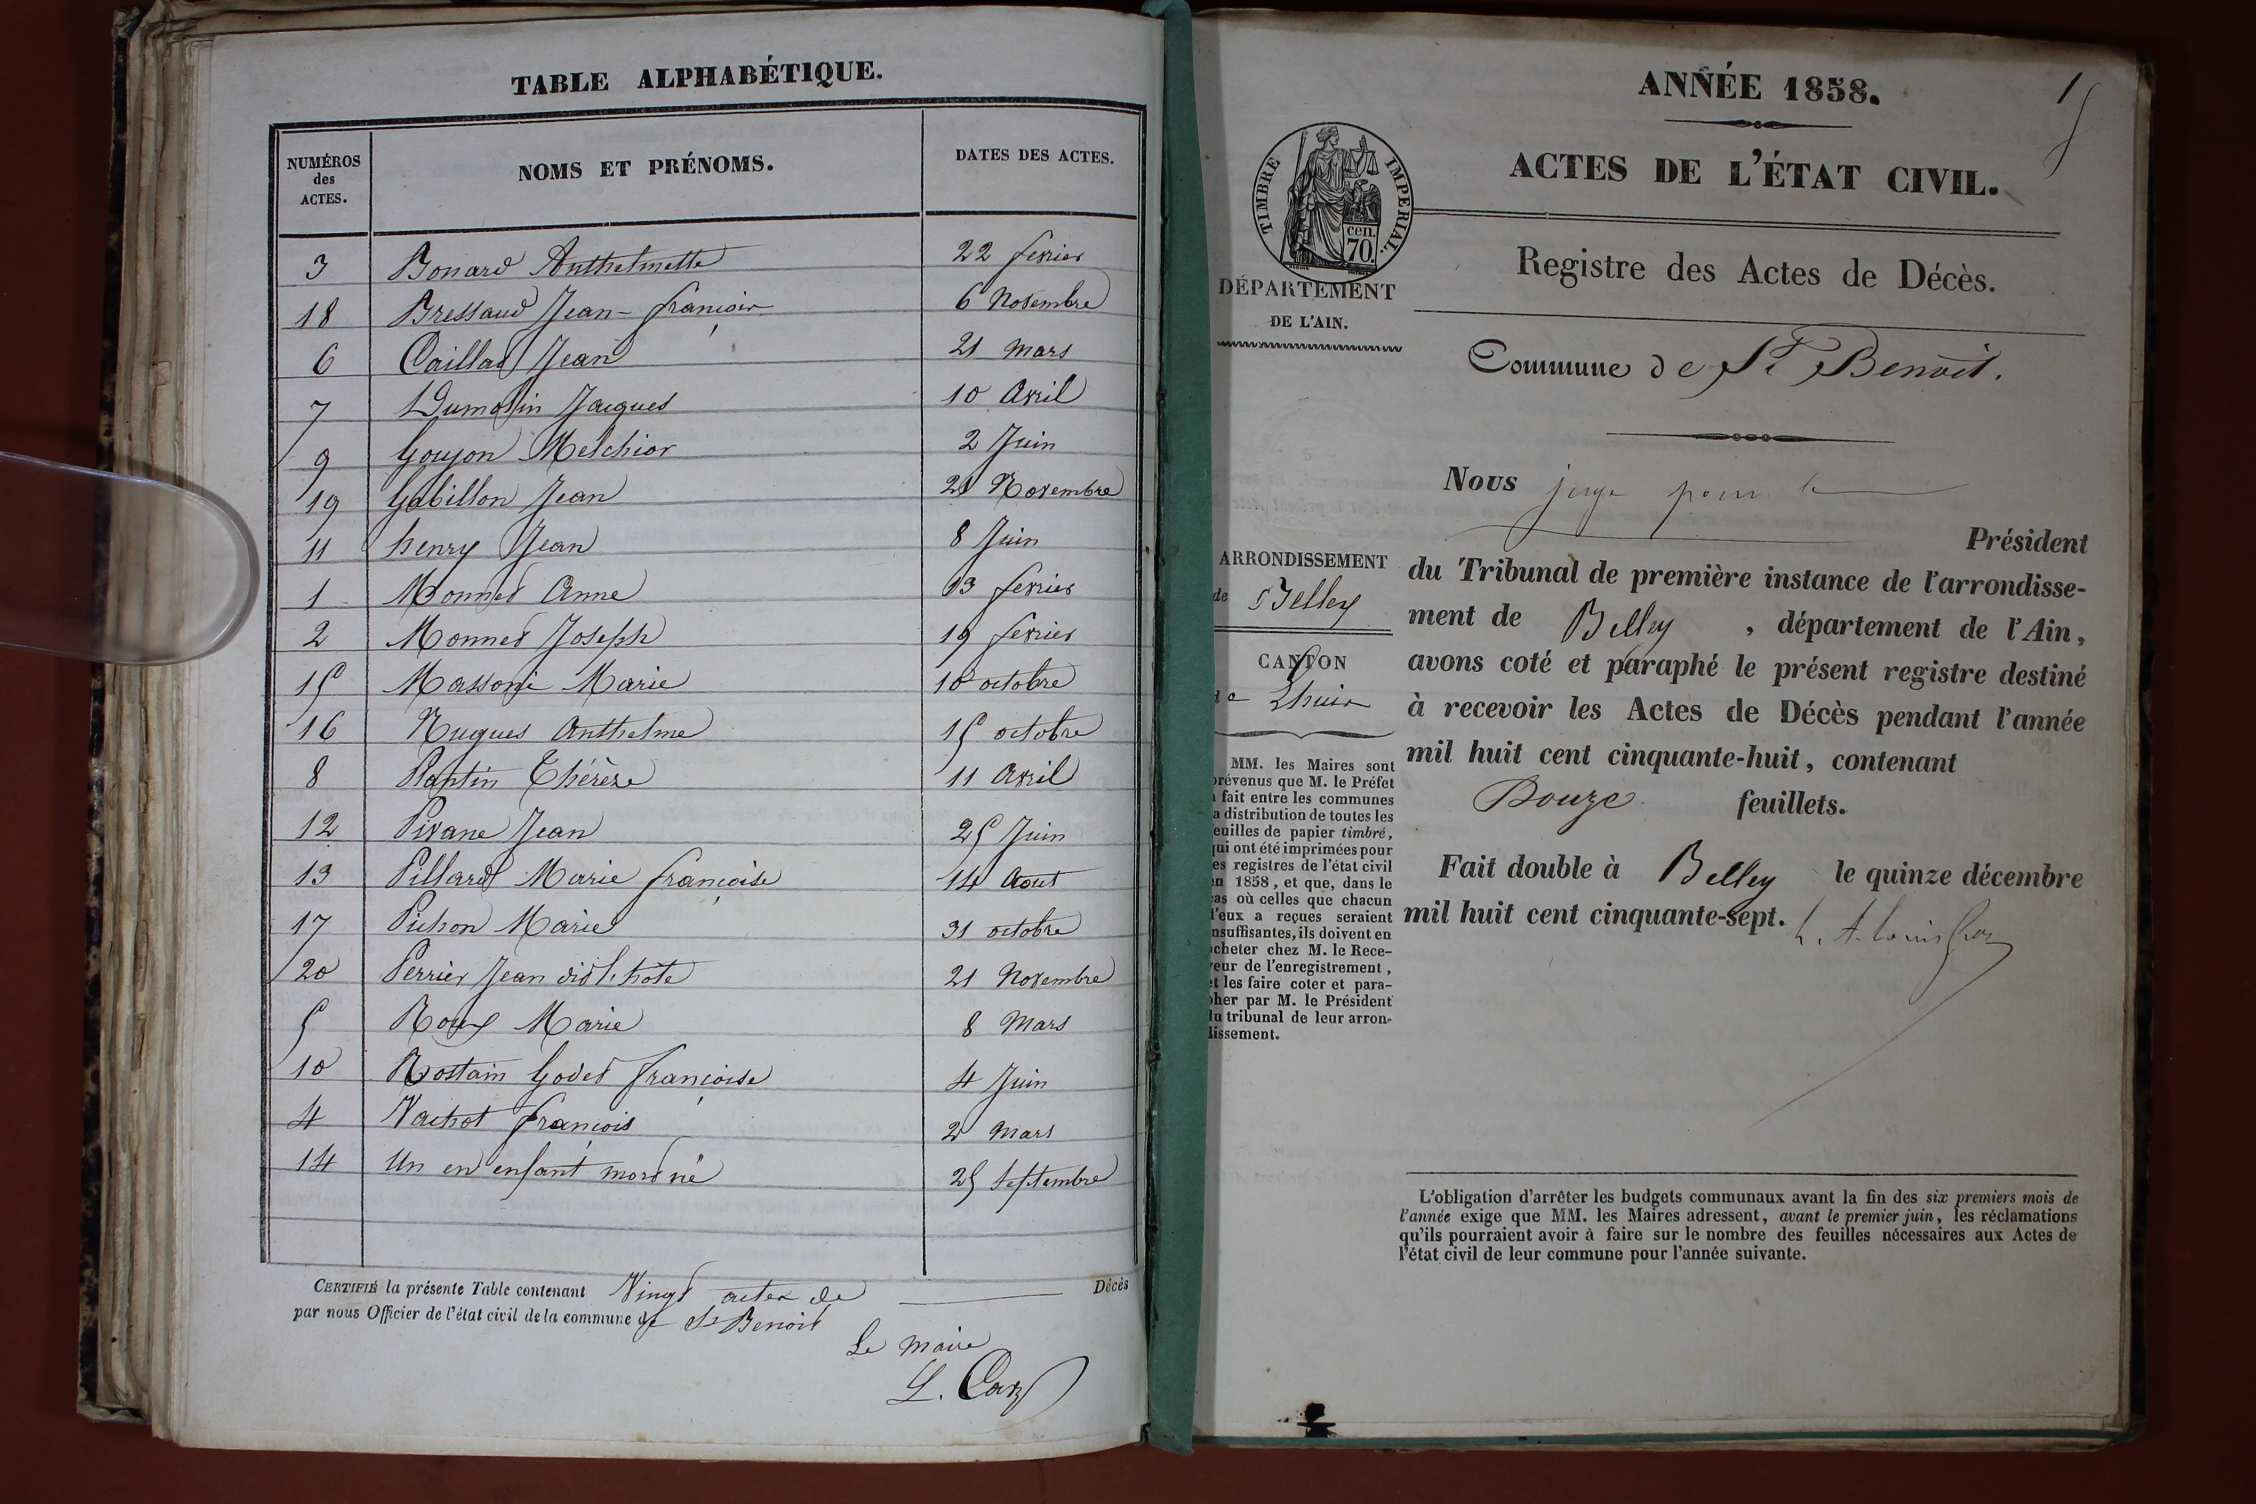 TABLE ALPHABÉTIQUE.
NUMÉROS des ACTES. NOMS ET PRÉNOMS. DATES DES ACTES.
3 Bonard Anthelmette 22 fevrier
18 Bressaud Jean-françois 6 Novembre
6 Caillat Jean 21 Mars
7 Dumolin Jacques 10 Avril
9 Goujon Melchior 2 Juin
19 Gabillon Jean 21 Novembre
11 henry Jean 8 Juin
1 Monnet Anne 13 fevrier
2 Monnet Joseph 19 fevrier
15 Massoni Marie 10 octobre
16 Nugues Anthelme 15 octobre
8 Plantin Thérèze 11 Avril
12 Pivane Jean 25 Juin
13 Pillard Marie françoise 14 Aout
17 Pichon Marie 31 octobre
20 Perrier Jean dit l'hote 21 Novembre
5 Roux Marie 8 Mars
10 Rostain Godet françoise 4 Juin
4 Vachot françois 2 Mars
14 Un en enfant mort né 25 Septembre
CERTIFIÉ la présente Table contenant Vingt actes de Décès
par nous Officier de l'état civil de la commune de St Benoit
Le Maire
ANNÉE 1858.
1
ACTES DE L'ÉTAT CIVIL.
TIMBRE IMPERIAL.
cen.
70.
Registre des Actes de Décès.
DÉPARTEMENT
DE L'AIN.
Commune de St Benoit.
Nous juge pour le
Président
du Tribunal de première instance de l'arrondisse-
ment de Belley, département de l'Ain,
avons coté et paraphé le présent registre destiné
à recevoir les Actes de Décès pendant l'année
mil huit cent cinquante-huit, contenant
Douze feuillets.
Fait double à Belley le quinze décembre
mil huit cent cinquante-sept.
ARRONDISSEMENT
de Belley
CANTON
de Lhuis
MM. les Maires sont
prévenus que M. le Préfet
a fait entre les communes
la distribution de toutes les
feuilles de papier timbré,
qui ont été imprimées pour
les registres de l'état civil
en 1858, et que, dans le
cas où celles que chacun
d'eux a reçues seraient
insuffisantes, ils doivent en
acheter chez M. le Rece-
veur de l'enregistrement,
et les faire coter et para-
pher par M. le Président
du tribunal de leur arron-
dissement.
L'obligation d'arrêter les budgets communaux avant la fin des six premiers mois de
l'année exige que MM. les Maires adressent, avant le premier juin, les réclamations
qu'ils pourraient avoir à faire sur le nombre des feuilles nécessaires aux Actes de
l'état civil de leur commune pour l'année suivante.